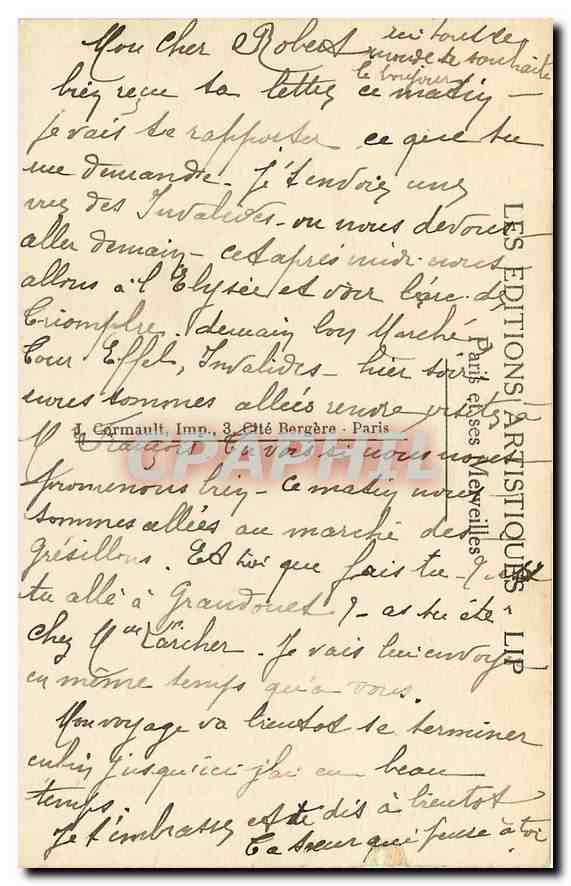 Mon cher Robert
ici tout le
monde te souhaite
le bonjour
bien reçu ta lettre ce matin -
je vais te rapporter ce que tu
me demande. Je t'envoie une
vue des Invalides - ou nous devons
aller demain - cet après midi nous
allons à l'Elysée et voir l'arc de
Triomphe. demain bon Marché
Tour Effel, Invalides - hier soir
nous sommes allées rendre visite à
M François Tu vois si nous nous
promenons bien - ce matin nous
sommes allées au marché des
Grésillons. Et toi que fais tu - es
tu allé à Grandouet ? - as tu été
chez Mme Larcher. Je vais lui envoyer
en même temps qu'a vous.
Mon voyage va bientot se terminer
enfin jusqu'ici j'ai eu beau
temps.
Je t'embrasse et te dis à bientot
Ta sœur qui pense à toi
J. Cormault, Imp., 3, Cité Bergère - Paris
CPAPHIL
LES EDITIONS ARTISTIQUES - LIP
Paris et ses Merveilles